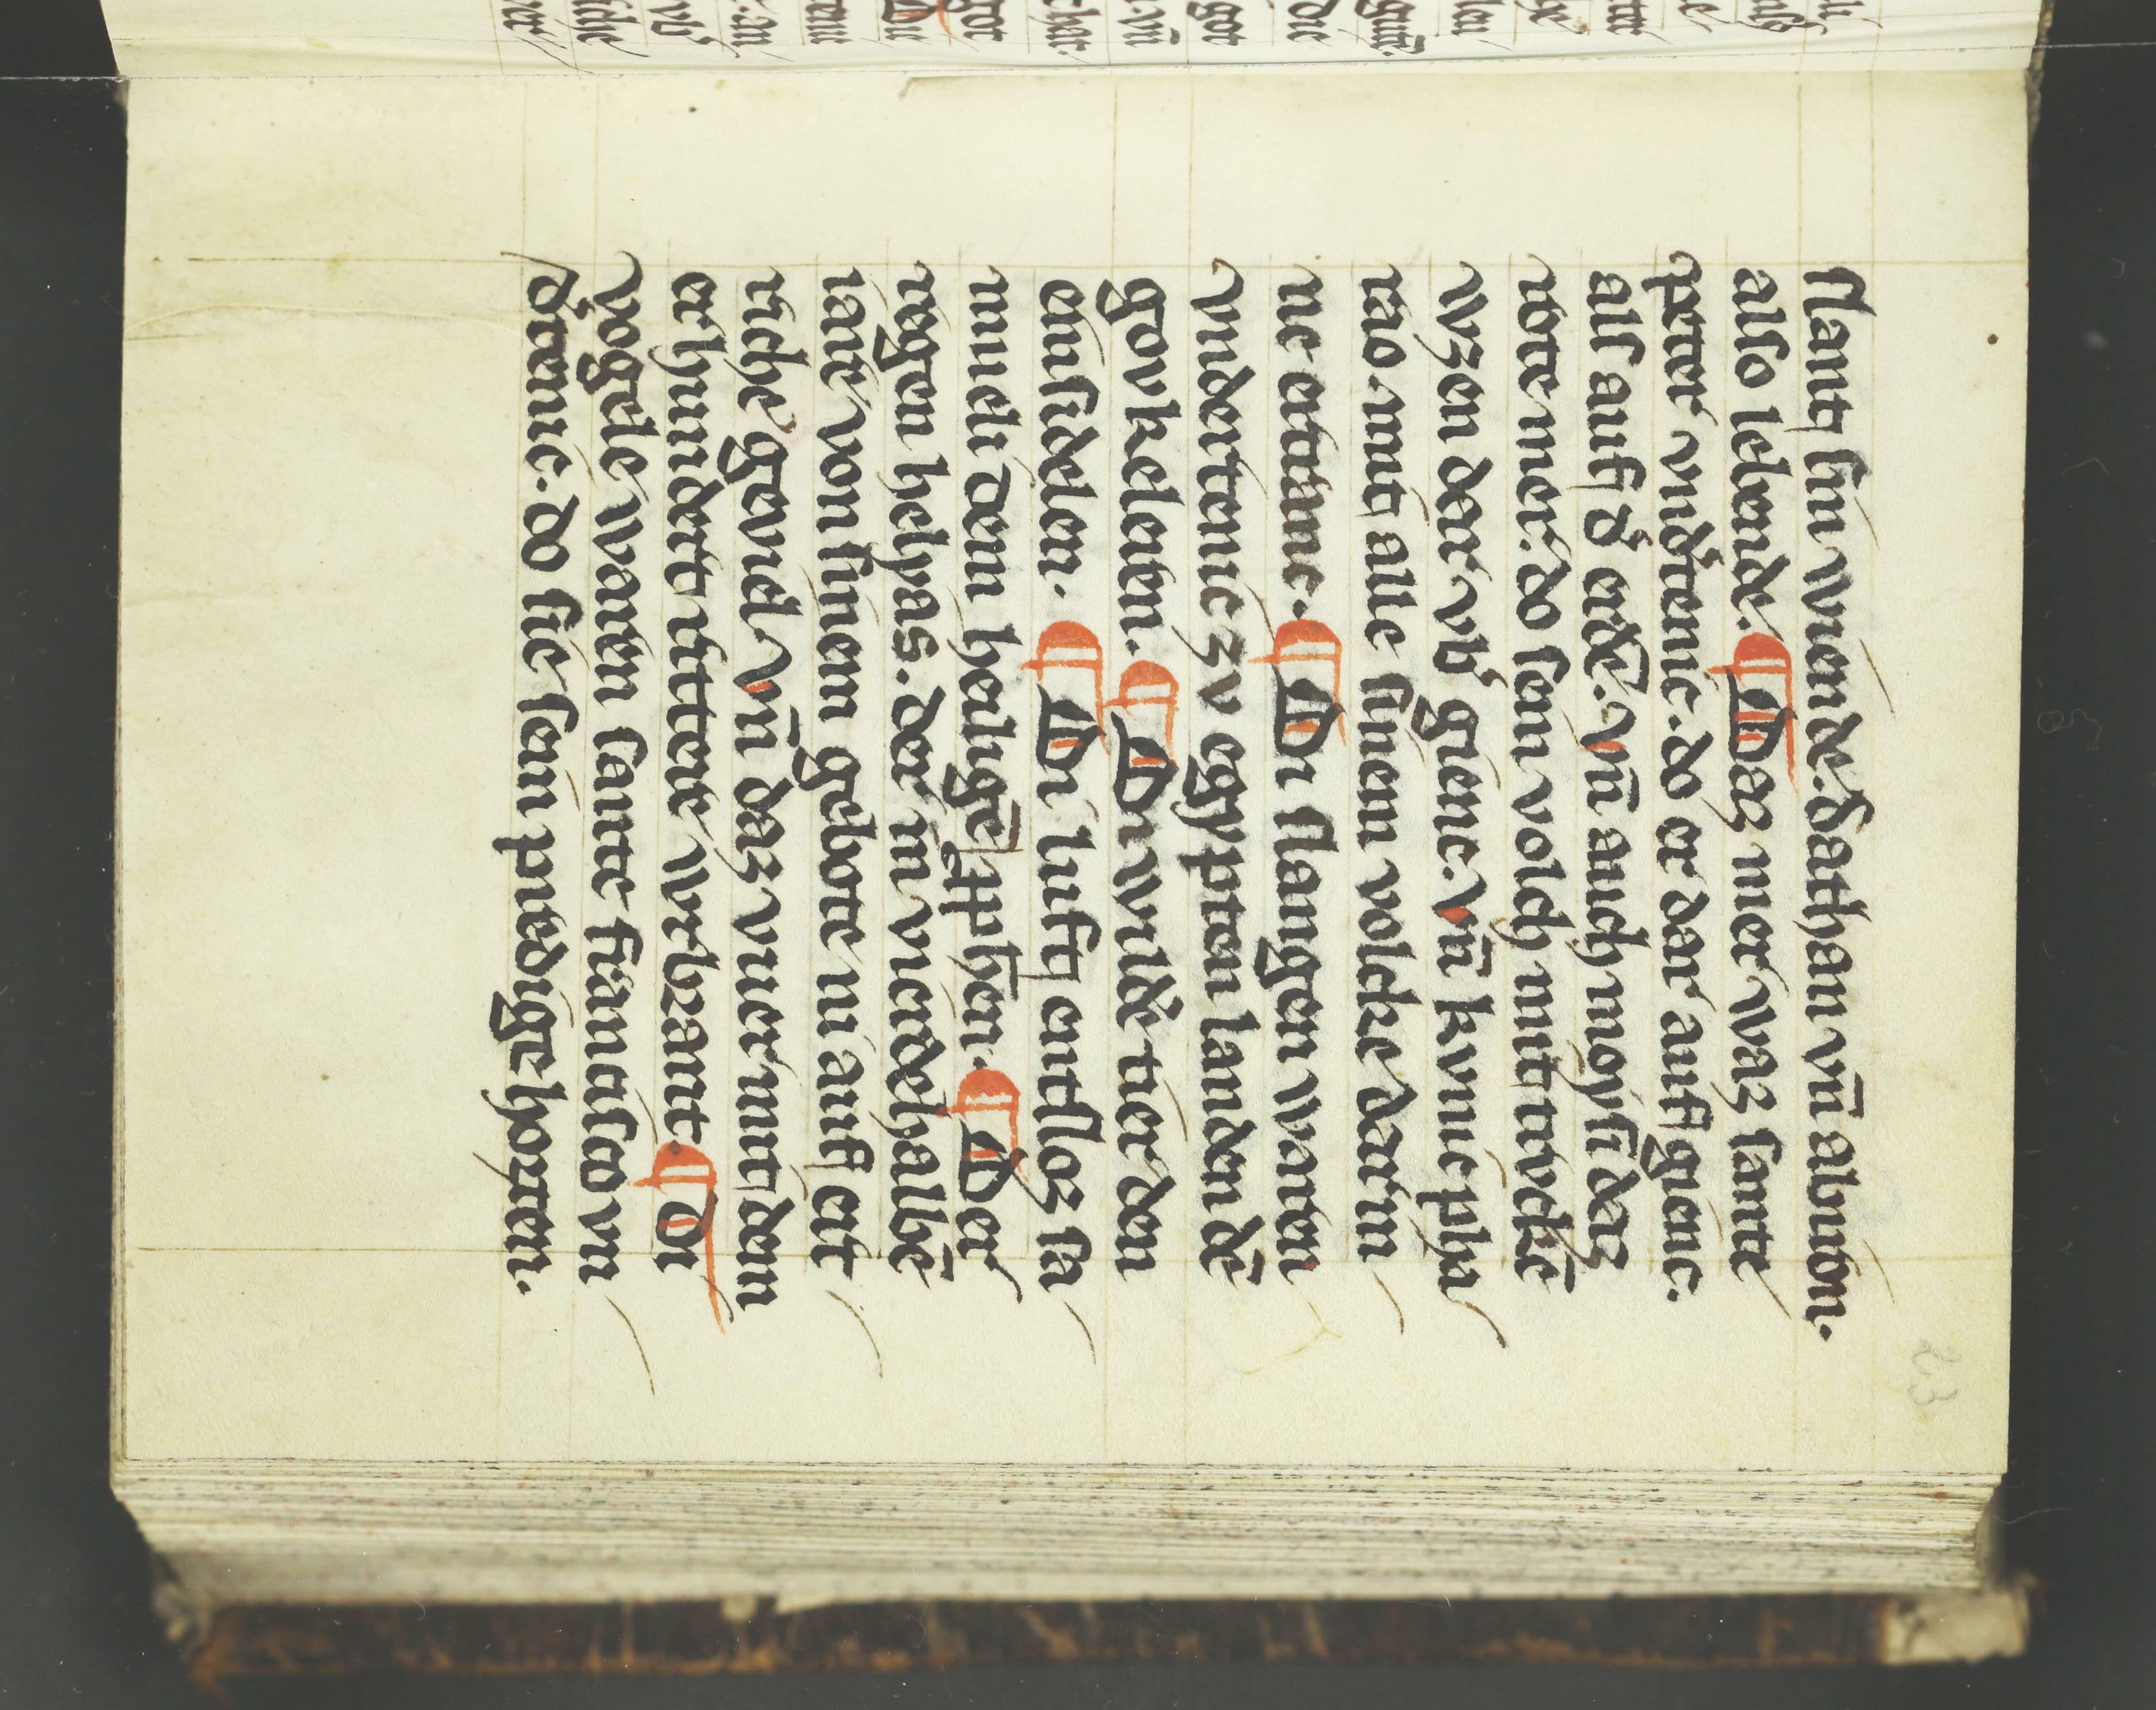 slant sin viende. dathan vn̄ abiron.
also lebende. ¶ Daz mer waz sante
peter vndˀtenic. do er dar auf gienc.
alſ auf dˀ erdē. vn̄ auch moysi daz
rote mer. do sein volch mit trvckē
wzen dar vbˀ gienc. vn̄ kvnic pha
rao mit alle sinem volcke dar in
ne ertranc. ¶ Di slangen waren
vndertenic zv egypten landen dē
govkeleren. ¶ Di wildē tier den
einsidelen. ¶ Di luft entsloz sa
mueli dem heiligē ꝓphēn. ¶ Der
regen helyas. der in vierdehalbē
iare von sinem gebote ni auf ert
riche geviel vn̄ daz vuer mit dem
er hundert rittere verbrant ¶ Di
vogele waren sante francisco vn
dˀtenic. do sie sein predige horten.